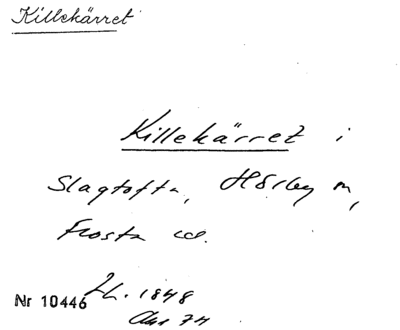 Killekärret
Killekärret i
Slagtofta, Hörby sn,
Frosta hd.
Lh. 1848
Nr 10446
Akt 74